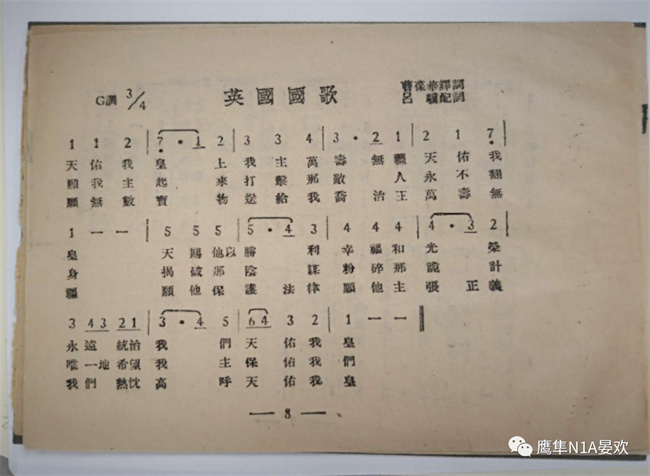 G調 3/4 英國國歌 曹葆華譯詞
呂驥配詞
1 1 2 | 7 · 1 2 | 3 3 4 | 3 · 2 1 | 2 1 7 |
天 佑 我 皇 上 我 主 萬 壽 無 疆 天 佑 我
願 我 主 起 來 打 擊 那 敵 人 永 不 翻
願 無 數 寶 物 送 給 我 喬 治 王 萬 壽 無
1 — — | 5 5 5 | 5 · 4 3 | 4 4 4 | 4 · 3 2 |
皇 天 賜 他 以 勝 利 幸 福 和 光 榮
身 揭 破 他 那 陰 謀 粉 碎 那 詭 計
疆 願 他 保 護 法 律 願 他 主 張 正 義
3 43 21 | 3 · 4 5 | 64 3 2 | 1 — — ||
永 遠 統治 我 們 天 佑 我 皇
唯 一地 希望 我 主 保 佑 我 們
我 們 熱忱 高 呼 天 佑 我 皇
— 8 —
鹰隼N1A晏欢